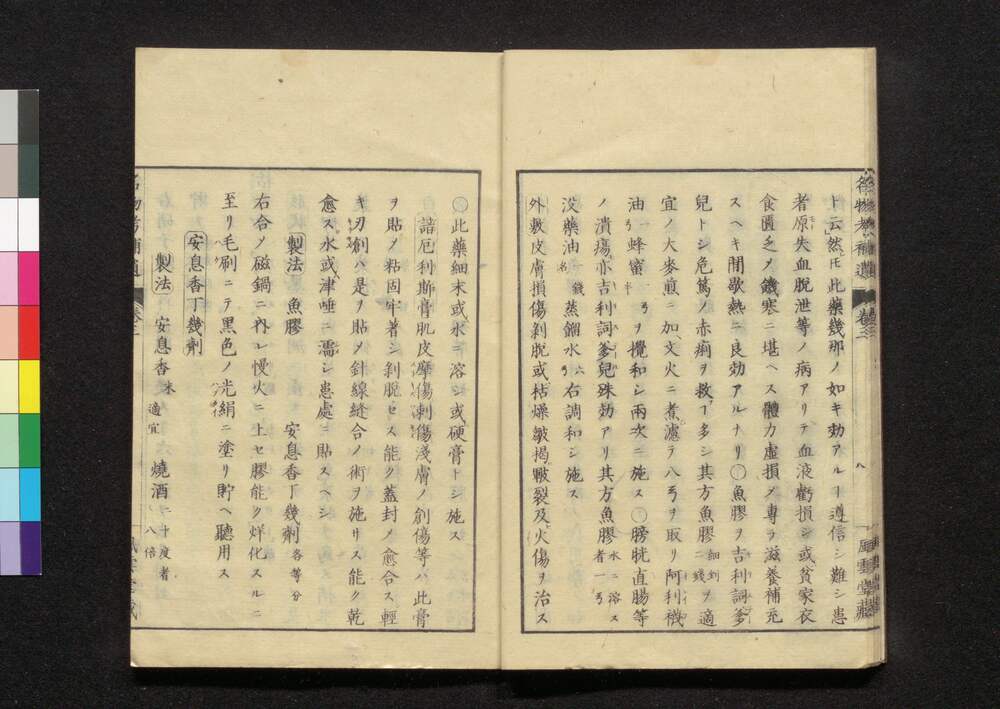 ト云然𪜈此藥幾那ノ如キ効アルヿ遵信シ難シ患
者原失血脫泄等ノ病アリテ血液虧損シ或貧家衣
食匱乏メ饑寒ニ堪ヘス體力虛損メ專ラ滋養補充
スヘキ間歇熱ニ良効アルナリ○魚膠ヲ吉利詞爹
兒トシ危篤ノ赤痢ヲ救フ多シ其方魚膠細剉二錢ヲ適
宜ノ大麥煎ニ加文火ニ煮濾ラ八弓ヲ取リ阿利襪
油一弓蜂蜜半弓ヲ攪和シ兩次ニ施ス○膀胱直腸等
ノ潰瘍亦吉利詞爹兒殊効アリ其方魚膠水ニ溶ス者一弓
沒藥油各錢蒸餾水六弓右調和シ施ス
外敷皮膚損傷剝脫或枯燥皺揭皸裂及火傷ヲ治ス
名物考補遺 卷三 八 風雲堂藏
○此藥細末或水ニ溶シ或硬膏トシ施ス
諳厄利斯膏肌皮摩傷刺傷淺膚ノ創傷等ハ此膏
ヲ貼メ粘固牢著シ剝脫セス能ク蓋封メ愈合ス輕
キ刃創ハ是ヲ貼メ針線縫合ノ術ヲ施サス能ク乾
愈ス水或津唾ニ濡シ患處ニ貼スヘシ
製法 魚膠 安息香丁幾劑各等分
右合メ磁鍋ニ內レ慢火ニ上セ膠能ク烊化スルニ
至リ毛刷ニテ黑色ノ光絹ニ塗リ貯ヘ聽用ス
安息香丁幾劑
製法 安息香末適宜 燒酒二十度者八倍